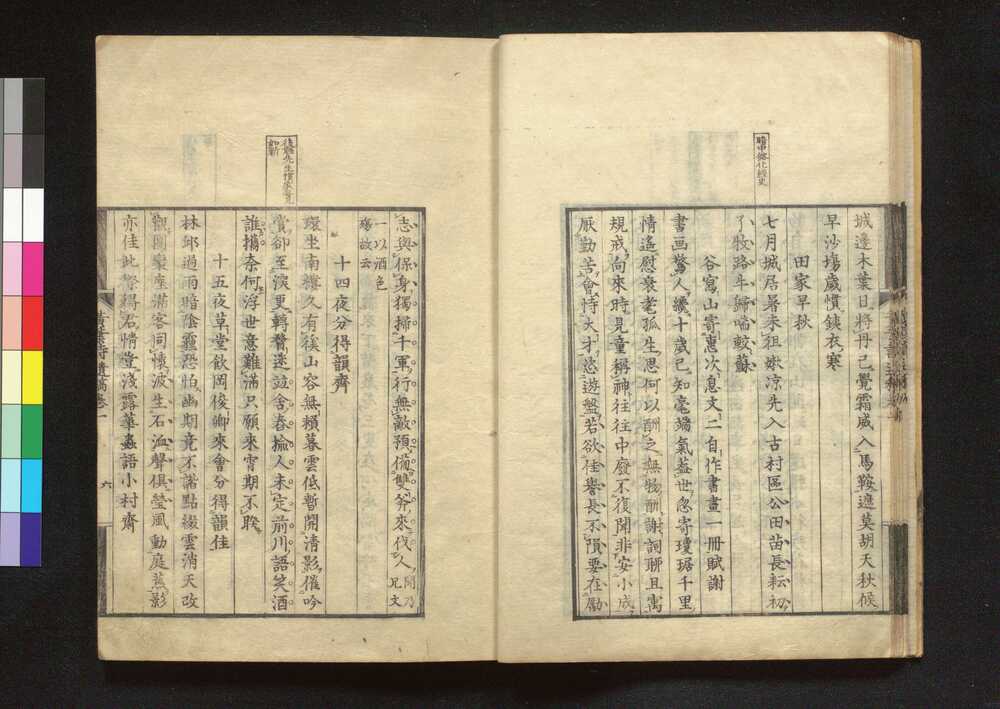 城邊木葉日將丹已覺霜威入馬鞍遮莫胡天秋候
早沙場歲慣鐵衣寒
田家早秋
七月城居暑未徂嫩涼先入古村區公田苗長耘初
了牧路牛歸喘較蘇
谷寫山寄惠次息文二自作書畫一冊賦謝
書画驚人纔十歲已知毫端氣蓋世忽寄瓊琚千里
情遙慰衰老孤生思何以酬之無物酬謝詞聊且寓
規戒向來時見童稱神往往中廢不復聞非安小成
厭勤苦會恃大才恣遊盤若欲佳譽長不隕要在勵
志與保身獨掃千軍行無敵預備雙斧來伐人
聞乃兄文
一以酒色
殤故云
十四夜分得韻齊
環坐南樓久有徯山容無賴暮雲低暫開清影催吟
賞卻至深更轉瞀迷竝舍舂揄人未定前川語笑酒
誰攜奈何浮世意難滿只願來宵期不睽
十五夜草堂飲岡俊卿來會分得韻佳
林邱過雨暗陰霾恐怕幽期竟不諧點綴雲消天改
觀團欒座滿客同懷波生石澁聲俱瑩風動庭蕉影
亦佳此際得君情豈淺露華蟲語小村齋
六